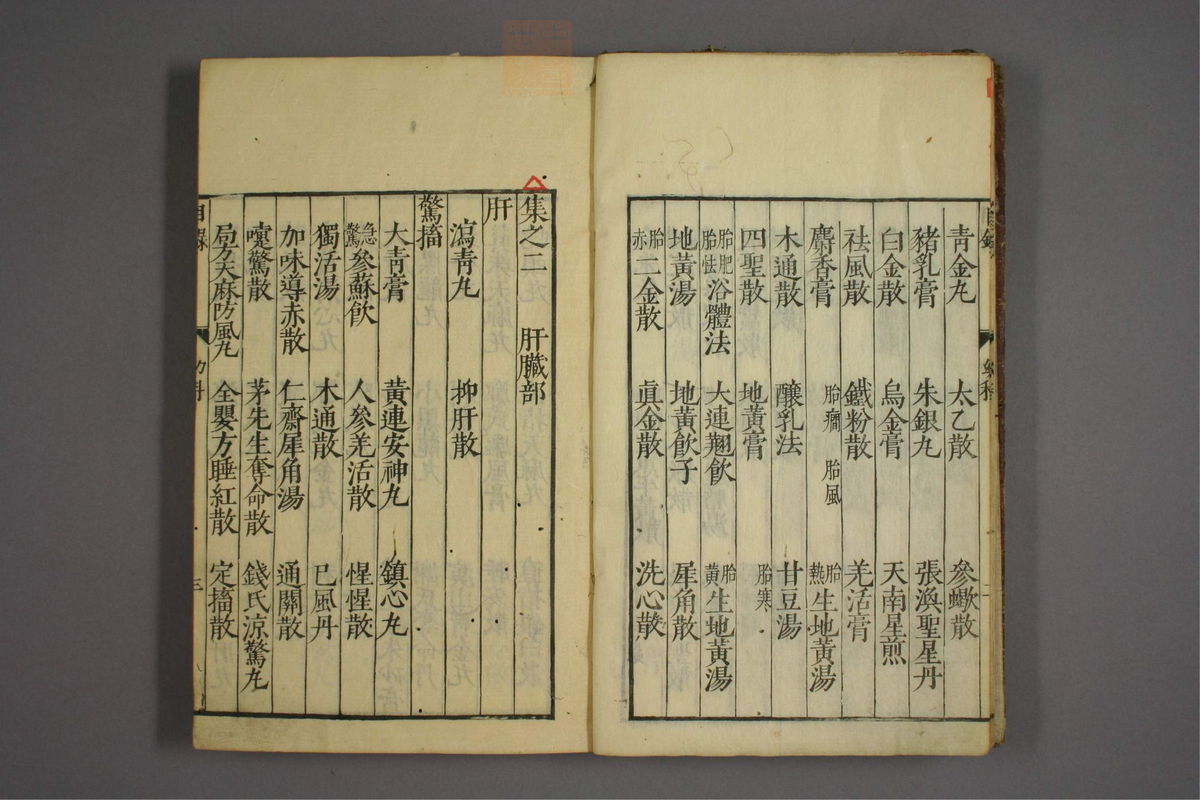 青金丸 太乙散 參蠍散
豬乳膏 朱銀丸 張渙聖星丹
白金散 烏金膏 天南星煎
祛風散 鐵粉散 羌活膏
麝香膏 胎癇 胎風 胎熱生地黃湯
木通散 釀乳法 甘豆湯
四聖散 地黃膏 胎寒
胎肥胎怯浴體法 大連翹飲 胎黃生地黃湯
地黃湯 地黃飲子 犀角散
胎赤二金散 眞金散 洗心散
集之二 肝臟部
肝
瀉青丸 抑肝散
驚搐
大青膏 黃連安神丸 鎮心丸
急驚參蘇飲 人參羌活散 惺惺散
獨活湯 木通散 巳風丹
加味導赤散 仁齋犀角湯 通關散
嚏驚散 茅先生奪命散 錢氏涼驚丸
局方天麻防風丸 全嬰方睡紅散 定搐散
目錄 三